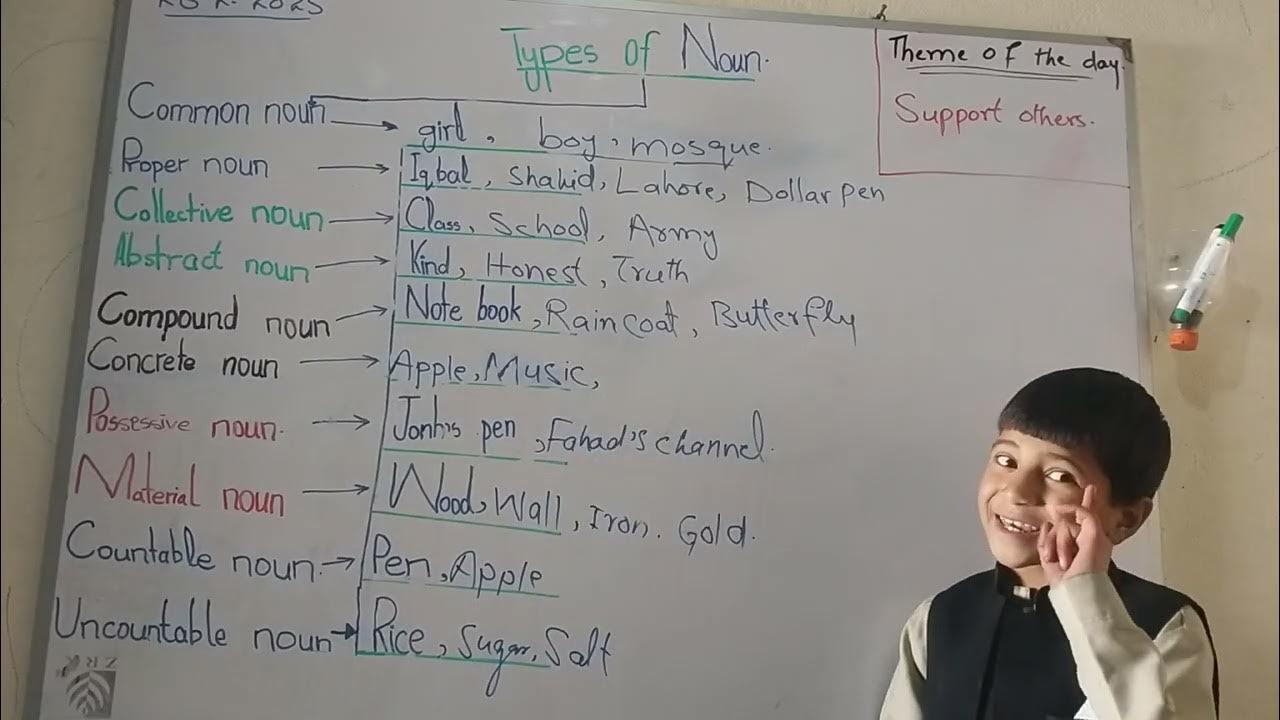 Types of Noun.
Theme of the day.
Support others.
Common noun → girl, boy, mosque.
Proper noun → Iqbal, Shahid, Lahore, Dollar pen
Collective noun → Class, School, Army
Abstract noun → Kind, Honest, Truth
Compound noun → Note book, Raincoat, Butterfly
Concrete noun → Apple, Music,
Possessive noun. → Jonh's pen, Fahad's channel.
Material noun → Wood, Wall, Iron. Gold.
Countable noun. → Pen, Apple
Uncountable noun → Rice, Sugar, Salt